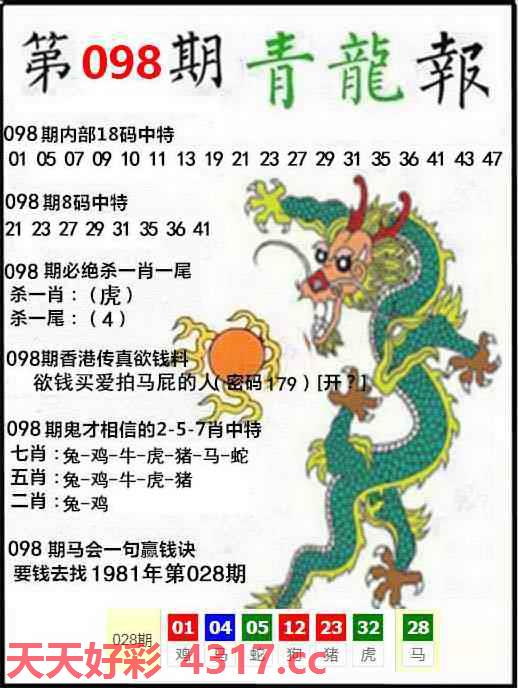 第098期 青龍報
098期内部18码中特
01 05 07 09 10 11 13 19 21 23 27 29 31 35 36 41 43 47
098期8码中特
21 23 27 29 31 35 36 41
098 期必绝杀一肖一尾
杀一肖：（虎）
杀一尾：（4）
098期香港传真欲钱料
欲钱买爱拍马屁的人(密码179）[开？]
098期鬼才相信的2-5-7肖中特
七肖：兔-鸡-牛-虎-猪-马-蛇
五肖：兔-鸡-牛-虎-猪
二肖：兔-鸡
098 期马会一句赢钱诀
要钱去找1981年第028期
028期 01 04 05 12 23 32 28
鸡 马 蛇 狗 猪 虎 马
天天好彩 4317.cc